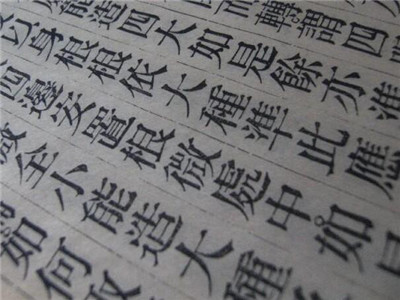 而轉謂四
能造四大如是餘亦准
以身根根依大種準此應
四邊安置根微處中如是
全小能造大種
如何